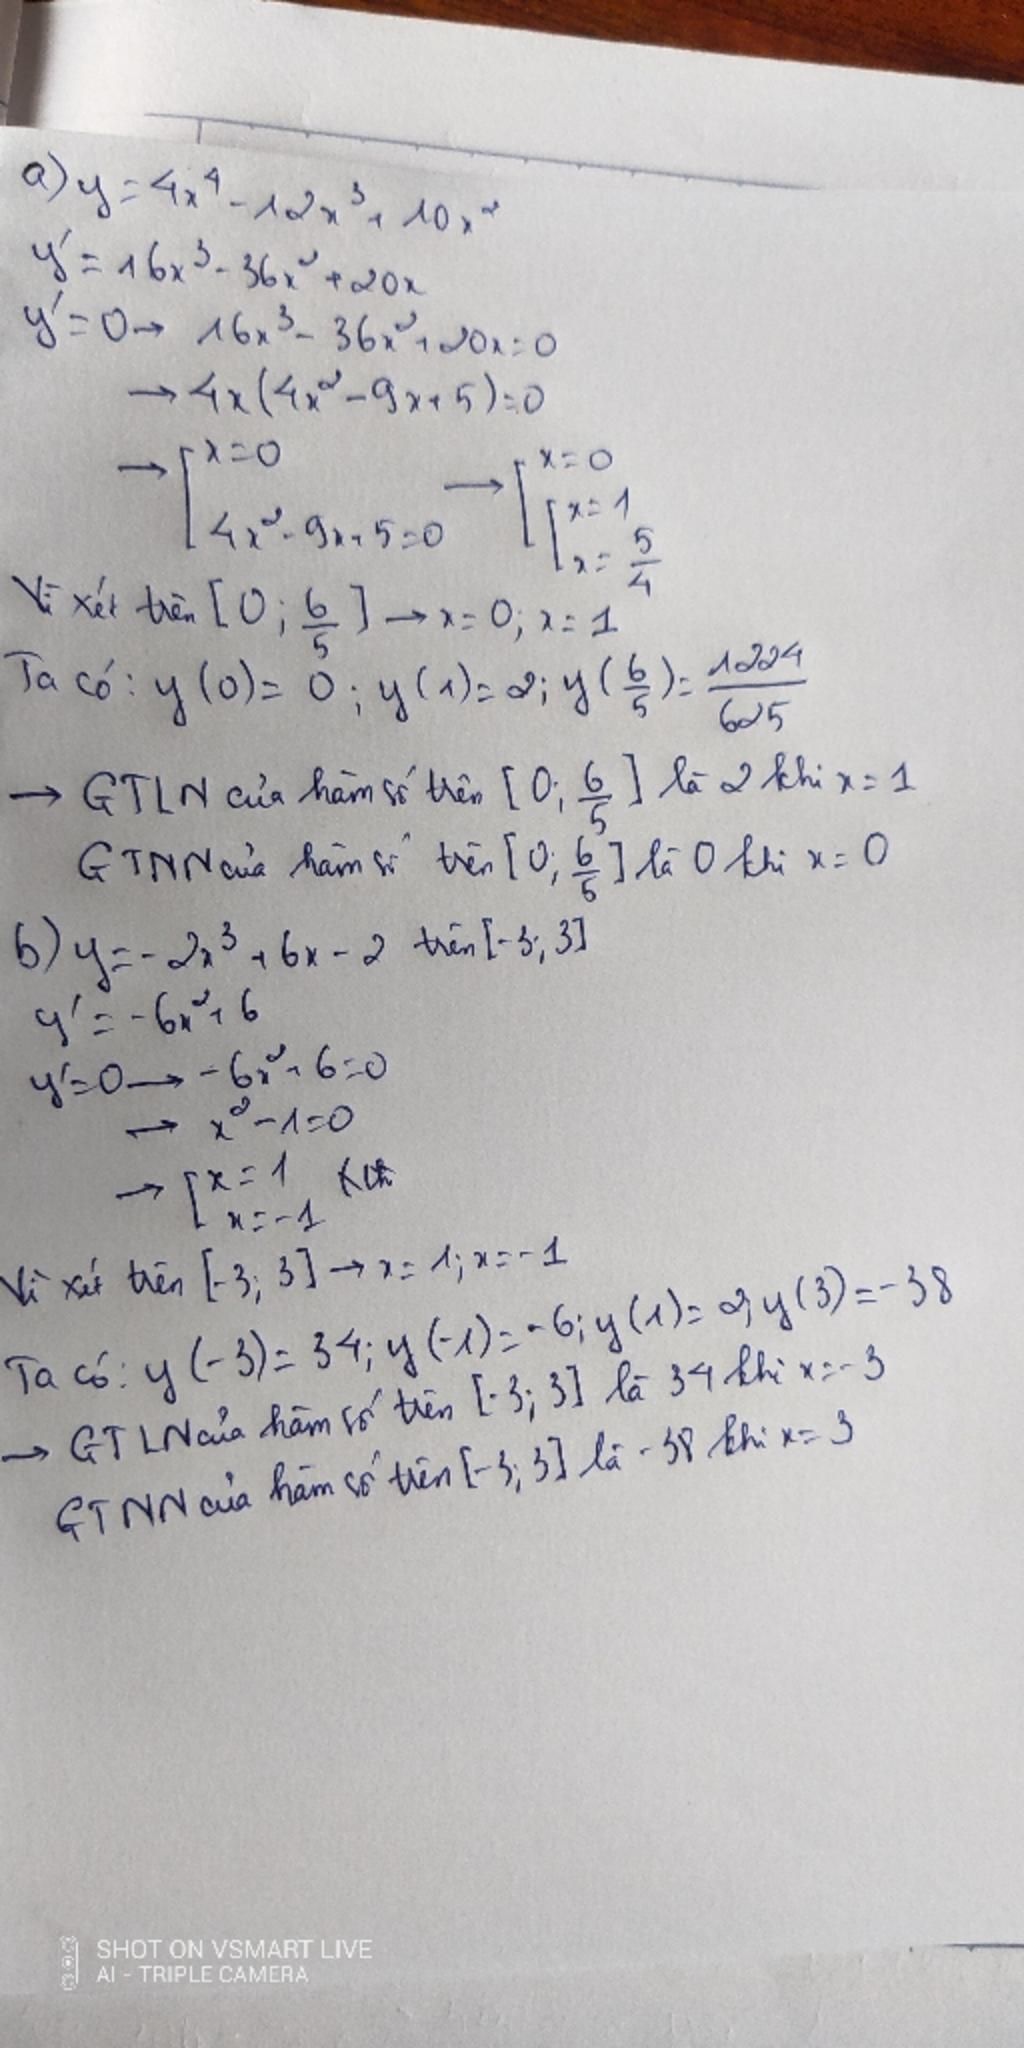 a) y = 4x⁴ - 12x³ + 10x²
y' = 16x³ - 36x² + 20x
y' = 0 → 16x³ - 36x² + 20x = 0
→ 4x(4x² - 9x + 5) = 0
→ [ x = 0 → [ x = 0
[ x = 1
4x² - 9x + 5 = 0 x = 5/4
Vì xét trên [0; 6/5] → x = 0; x = 1
Ta có: y(0) = 0; y(1) = 2; y(6/5) = 1224/625
→ GTLN của hàm số trên [0; 6/5] là 2 khi x = 1
GTNN của hàm số trên [0; 6/5] là 0 khi x = 0
b) y = -2x³ + 6x - 2 trên [-3; 3]
y' = -6x² + 6
y' = 0 → -6x² + 6 = 0
→ x² - 1 = 0
→ [ x = 1
x = -1
Vì xét trên [-3; 3] → x = 1; x = -1
Ta có: y(-3) = 34; y(-1) = -6; y(1) = 2; y(3) = -38
→ GTLN của hàm số trên [-3; 3] là 34 khi x = -3
GTNN của hàm số trên [-3; 3] là -38 khi x = 3
SHOT ON VSMART LIVE
AI - TRIPLE CAMERA